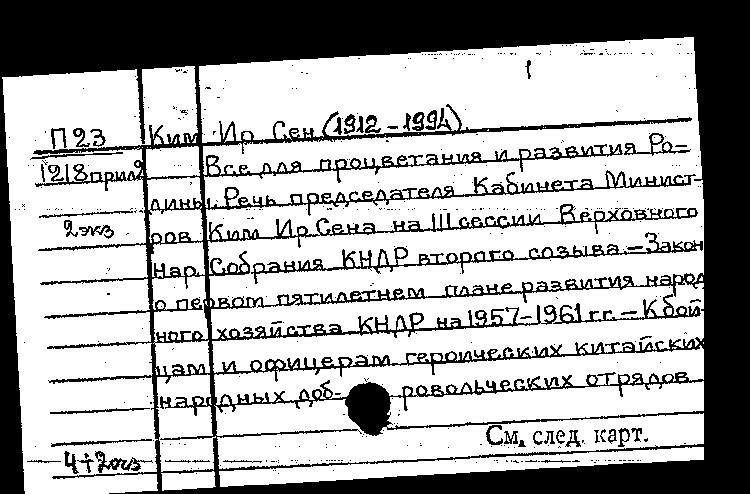 1
П23 Ким Ир Сен (1912-1994).
1218 прил2 Все для процветания и развития Ро-
дины. Речь председателя Кабинета Минист-
2экз ров Ким Ир Сена на III сессии Верховного
Нар. Собрания КНДР второго созыва. - Закон
о первом пятилетнем плане развития народ
ного хозяйства КНДР на 1957-1961 г.г. - К бой-
цам и офицерам героических китайских
народных доб- ровольческих отрядов
См. след. карт.
4+2экз